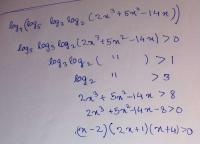 log₇(log₅ log₃ log₂(2x³+5x²-14x))
log₅ log₃ log₂(2x³+5x²-14x) > 0
log₃ log₂ ( " ) > 1
log₂ " > 3
2x³+5x²-14x > 8
2x³+5x²-14x-8>0
(x-2)(2x+1)(x+4)>0